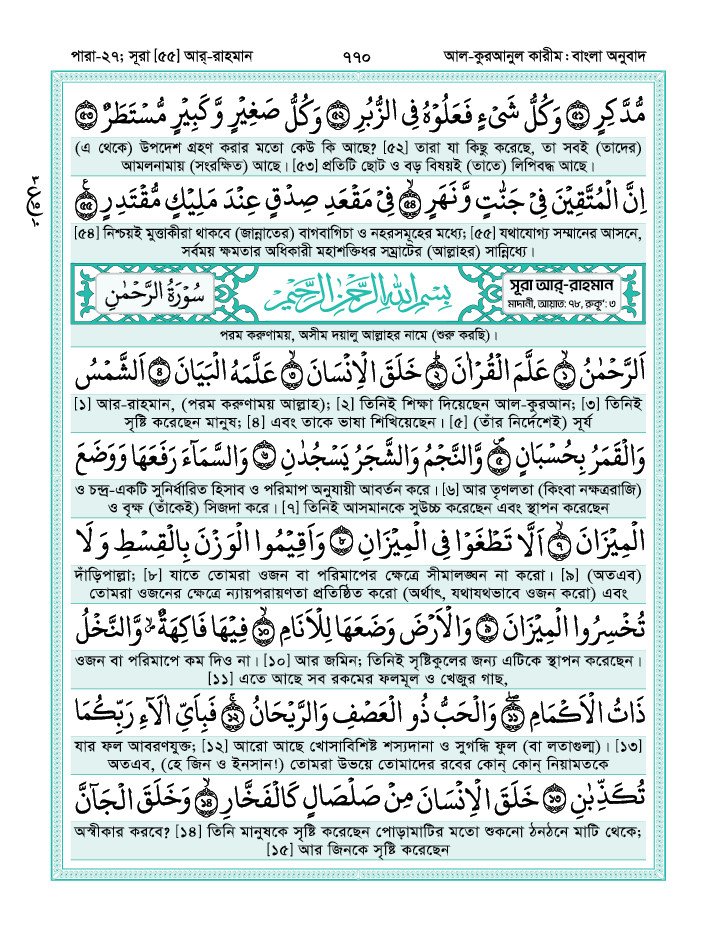 পারা-২৭; সূরা [৫৫] আর্-রাহমান ৭৭০ আল-কুরআনুল কারীম : বাংলা অনুবাদ
مُّدَّكِرٍ ۝٥١ وَكُلُّ شَیْءٍ فَعَلُوْهُ فِی الزُّبُرِ ۝٥٢ وَكُلُّ صَغِیْرٍ وَّكَبِیْرٍ مُّسْتَطَرٌ ۝٥٣
(এ থেকে) উপদেশ গ্রহণ করার মতো কেউ কি আছে? [৫২] তারা যা কিছু করেছে, তা সবই (তাদের)
আমলনামায় (সংরক্ষিত) আছে। [৫৩] প্রতিটি ছোট ও বড় বিষয়ই (তাতে) লিপিবদ্ধ আছে।
اِنَّ الْمُتَّقِیْنَ فِیْ جَنّٰتٍ وَّنَهَرٍ ۝٥٤ فِیْ مَقْعَدِ صِدْقٍ عِنْدَ مَلِیْكٍ مُّقْتَدِرٍ ۝٥٥
[৫৪] নিশ্চয়ই মুত্তাকীরা থাকবে (জান্নাতের) বাগবাগিচা ও নহরসমূহের মধ্যে; [৫৫] যথাযোগ্য সম্মানের আসনে,
সর্বময় ক্ষমতার অধিকারী মহাশক্তিধর সম্রাটের (আল্লাহর) সান্নিধ্যে।
সূরা আর্-রাহমান
মাদানী, আয়াত: ৭৮, রুকু': ৩
بِسْمِ اللهِ الرَّحْمٰنِ الرَّحِیْمِ
سُوْرَةُ الرَّحْمٰنِ
পরম করুণাময়, অসীম দয়ালু আল্লাহর নামে (শুরু করছি)।
اَلرَّحْمٰنُ ۝١ عَلَّمَ الْقُرْاٰنَ ۝٢ خَلَقَ الْاِنْسَانَ ۝٣ عَلَّمَهُ الْبَیَانَ ۝٤ اَلشَّمْسُ
[১] আর-রাহমান, (পরম করুণাময় আল্লাহ); [২] তিনিই শিক্ষা দিয়েছেন আল-কুরআন; [৩] তিনিই
সৃষ্টি করেছেন মানুষ; [৪] এবং তাকে ভাষা শিখিয়েছেন। [৫] (তাঁর নির্দেশেই) সূর্য
وَالْقَمَرُ بِحُسْبَانٍ ۝٥ وَّالنَّجْمُ وَالشَّجَرُ یَسْجُدٰنِ ۝٦ وَالسَّمَآءَ رَفَعَهَا وَوَضَعَ
ও চন্দ্র-একটি সুনির্ধারিত হিসাব ও পরিমাপ অনুযায়ী আবর্তন করে। [৬] আর তৃণলতা (কিংবা নক্ষত্ররাজি)
ও বৃক্ষ (তাঁকেই) সিজদা করে। [৭] তিনিই আসমানকে সুউচ্চ করেছেন এবং স্থাপন করেছেন
الْمِیْزَانَ ۝٧ اَلَّا تَطْغَوْا فِی الْمِیْزَانِ ۝٨ وَاَقِیْمُوا الْوَزْنَ بِالْقِسْطِ وَلَا
দাঁড়িপাল্লা; [৮] যাতে তোমরা ওজন বা পরিমাপের ক্ষেত্রে সীমালঙ্ঘন না করো। [৯] (অতএব)
তোমরা ওজনের ক্ষেত্রে ন্যায়পরায়ণতা প্রতিষ্ঠিত করো (অর্থাৎ, যথাযথভাবে ওজন করো) এবং
تُخْسِرُوا الْمِیْزَانَ ۝٩ وَالْاَرْضَ وَضَعَهَا لِلْاَنَامِ ۝١٠ فِیْهَا فَاكِهَةٌ وَّالنَّخْلُ
ওজন বা পরিমাপে কম দিও না। [১০] আর জমিন; তিনিই সৃষ্টিকুলের জন্য এটিকে স্থাপন করেছেন।
[১১] এতে আছে সব রকমের ফলমূল ও খেজুর গাছ,
ذَاتُ الْاَكْمَامِ ۝١١ وَالْحَبُّ ذُو الْعَصْفِ وَالرَّیْحَانُ ۝١٢ فَبِاَیِّ اٰلَآءِ رَبِّكُمَا
যার ফল আবরণযুক্ত; [১২] আরো আছে খোসাবিশিষ্ট শস্যদানা ও সুগন্ধি ফুল (বা লতাগুল্ম)। [১৩]
অতএব, (হে জিন ও ইনসান!) তোমরা উভয়ে তোমাদের রবের কোন্ কোন্ নিয়ামতকে
تُكَذِّبٰنِ ۝١٣ خَلَقَ الْاِنْسَانَ مِنْ صَلْصَالٍ كَالْفَخَّارِ ۝١٤ وَخَلَقَ الْجَآنَّ
অস্বীকার করবে? [১৪] তিনি মানুষকে সৃষ্টি করেছেন পোড়ামাটির মতো শুকনো ঠনঠনে মাটি থেকে;
[১৫] আর জিনকে সৃষ্টি করেছেন